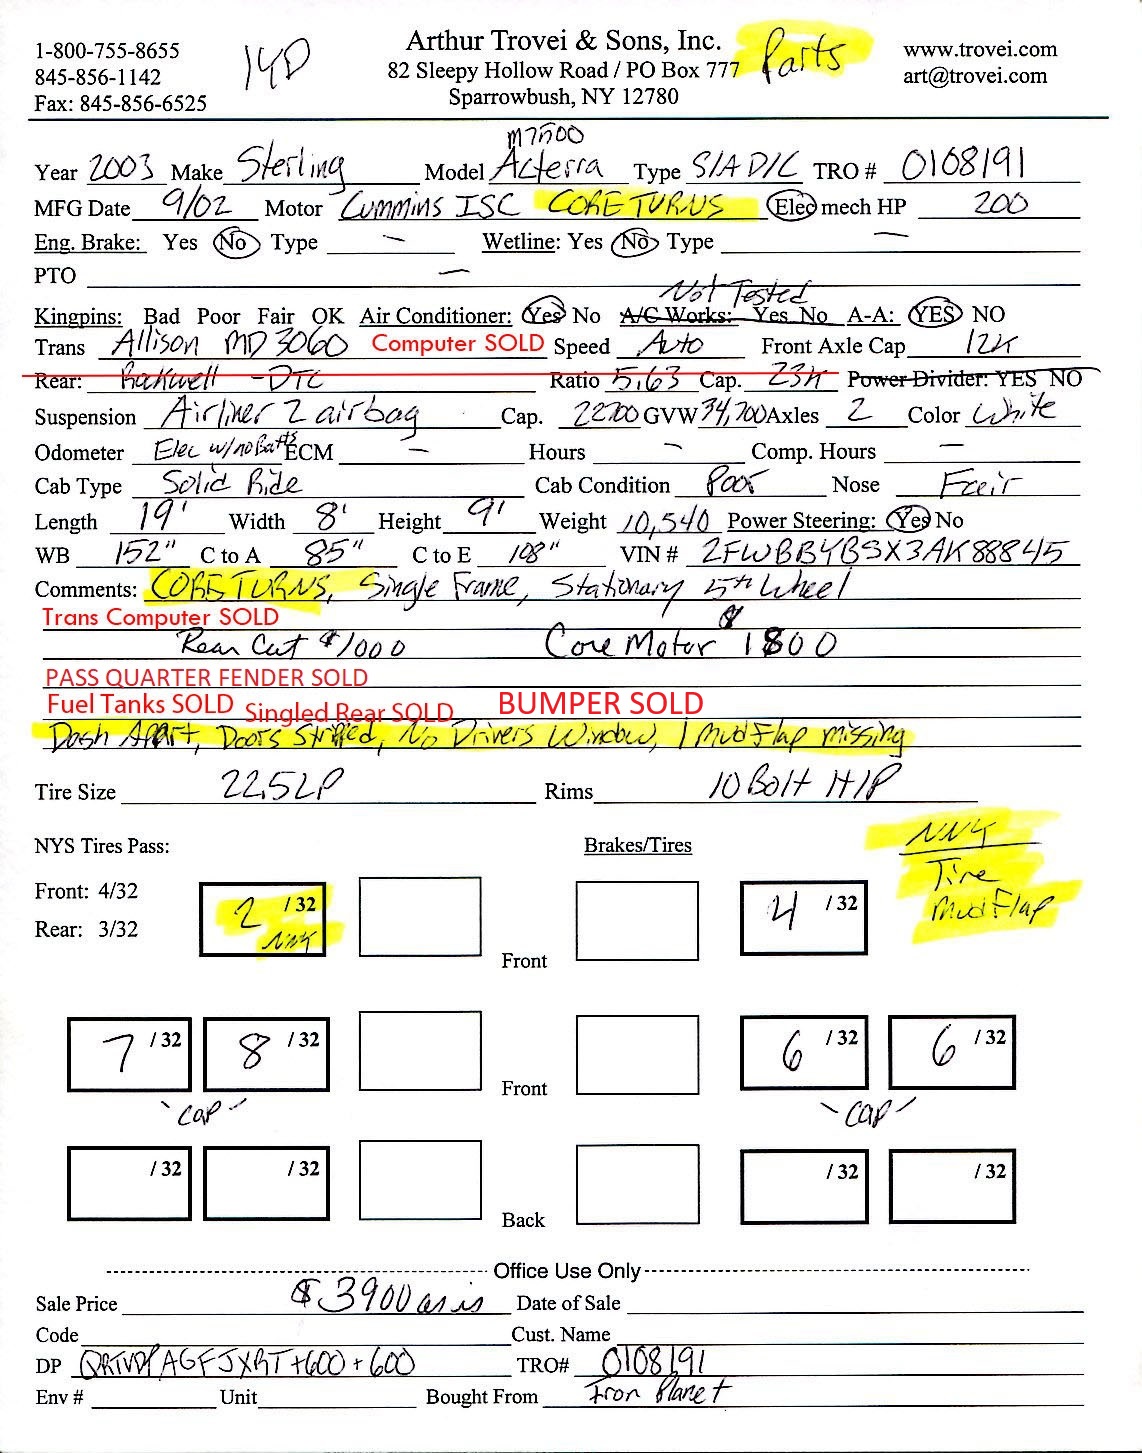 1-800-755-8655 14D Arthur Trovei & Sons, Inc. Parts www.trovei.com
845-856-1142 82 Sleepy Hollow Road / PO Box 777 art@trovei.com
Fax: 845-856-6525 Sparrowbush, NY 12780
M7500
Year 2003 Make Sterling Model Acterra Type S/A D/C TRO # 0108191
MFG Date 9/02 Motor Cummins ISC CORE TURNS Elec mech HP 200
Eng. Brake: Yes No Type - Wetline: Yes No Type -
PTO -
Not Tested
Kingpins: Bad Poor Fair OK Air Conditioner: Yes No A/C Works: Yes No A-A: YES NO
Trans Allison MD3060 Computer SOLD Speed Auto Front Axle Cap 12K
Rear: Rockwell - DTC Ratio 5.63 Cap. 23K Power Divider: YES NO
Suspension Airliner 2 airbag Cap. 22700 GVW 34,700 Axles 2 Color White
Odometer Elec w/no Batts ECM - Hours - Comp. Hours -
Cab Type Solid Ride Cab Condition Poor Nose Fair
Length 19' Width 8' Height 9' Weight 10,540 Power Steering: Yes No
WB 152" C to A 85" C to E 108" VIN # 2FWBBYBSX3AK88845
Comments: CORE TURNS, Single Frame, Stationary 5th Wheel
Trans Computer SOLD
Rear Cut $1000 Core Motor $1800
PASS QUARTER FENDER SOLD
Fuel Tanks SOLD Singled Rear SOLD BUMPER SOLD
Dash Apart, Doors Stripped, No Drivers Window, 1 Mud Flap missing
Tire Size 22.5LP Rims 10 Bolt H/P
NYS Tires Pass: Brakes/Tires NNY
Tire
Mud Flap
Front: 4/32 2 /32 NNY 4 /32
Rear: 3/32
Front
7 /32 8 /32 6 /32 6 /32
Front
"CAP" "CAP"
/32 /32 /32 /32
Back
Office Use Only
Sale Price $3900 as is Date of Sale
Code Cust. Name
DP QRTVDPAGFJXRT +600 + 600 TRO# 0108191
Env # Unit Bought From Iron Planet